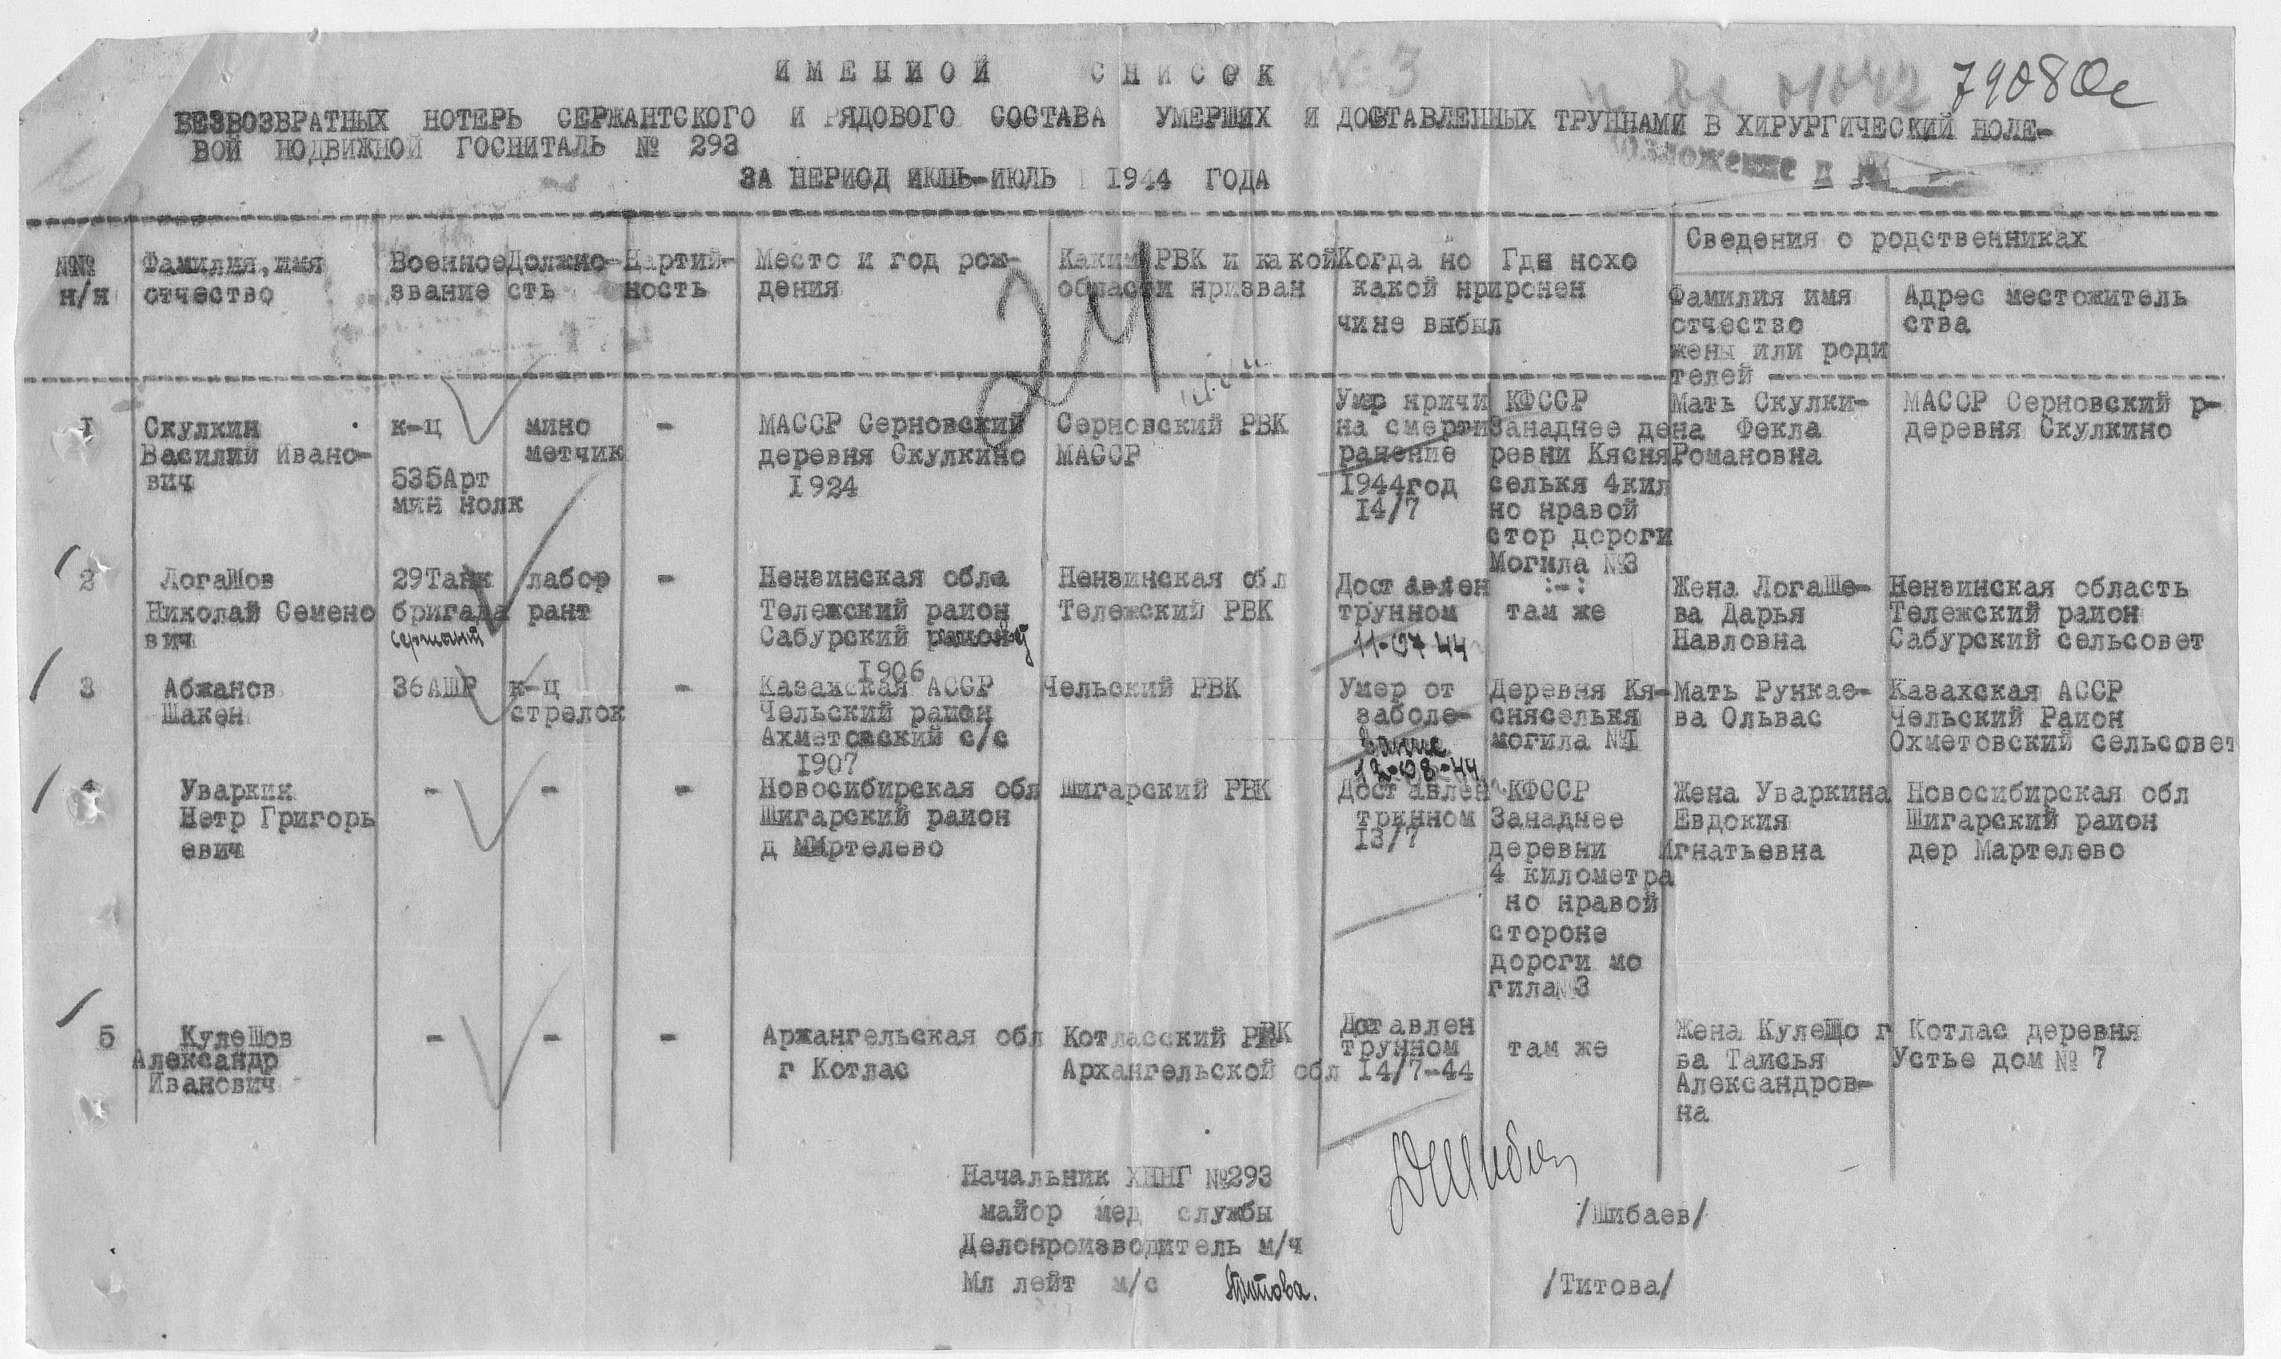 ИМЕННОЙ СПИСОК
№ 3
79080с
БЕЗВОЗВРАТНЫХ НОТЕРЬ СЕРЖАНТСКОГО И РЯДОВОГО СОСТАВА УМЕРШИХ И ДОСТАВЛЕННЫХ ТРУННАМИ В ХИРУРГИЧЕСКИЙ НОЛЕ-
ВОЙ НОДВИЖНОЙ ГОСНИТАЛЬ № 293
ЗА НЕРИОД ИЮНЬ-ИЮЛЬ 1944 ГОДА
№№ н/н
Фамилия, имя отчество
Военное звание
Должно-сть
Нартий-ность
Место и год рож-дения
Каким РВК и какой области нризван
Когда но какой нричине выбыл
Где нохоронен
Сведения о родственниках
Фамилия имя отчество жены или родителей
Адрес местожитель ства
24
1
Скулкин
Василий Ивано-
вич
к-ц
535Арт
мин нолк
мино
метчик
-
МАССР Серновский
деревня Скулкино
1924
Серновский РВК
МАССР
Умер нричи
на смерти
ранение
1944год
14/7
КФССР
Занаднее де
ревни Кясня
селькя 4кил
но нравой
стор дороги
Могила №3
Мать Скулки-
на Фекла
Романовна
МАССР Серновский р-
деревня Скулкино
2
Логашов
Николай Семено
вич
29Танк
бригада
сержант
лабор
рант
-
Нензинская обла
Тележский раион
Сабурский
1906
Нензинская обл
Тележский РВК
Доставлен
трунном
11-07-44
:-:
там же
Жена Логаше-
ва Дарья
Навловна
Нензинская область
Тележский раион
Сабурский сельсовет
3
Абжанов
Шакен
36АШР
к-ц
стрелок
-
Казахская АССР
Чельский раион
Ахметовский с/с
1907
Чельский РВК
Умер от
заболе-
вание
12-08-44
Деревня Кя-
сняселькя
могила №1
Мать Рункае-
ва Ольвас
Казахская АССР
Чельский Раион
Охметовский сельсовет
4
Уваркин
Нетр Григорь
евич
-
-
-
Новосибирская обл
Шигарский раион
д Мартелево
Шигарский РВК
Доставлен
трнном
13/7
КФССР
Занаднее
деревни
4 километра
но нравой
стороне
дороги мо
гила№3
Жена Уваркина
Евдокия
Игнатьевна
Новосибирская обл
Шигарский раион
дер Мартелево
5
Кулешов
Александр
Иванович
-
-
-
Аржангельская обл
г Котлас
Котласский РВК
Архангельской обл
Доставлен
трунном
14/7-44
там же
Жена Кулешо
ва Таисья
Александров-
на
г Котлас деревня
Устье дом № 7
Начальник ХННГ №293
майор мед службы
/Шибаев/
Делонроизводитель м/ч
Мл лейт м/с
Титова.
/Титова/